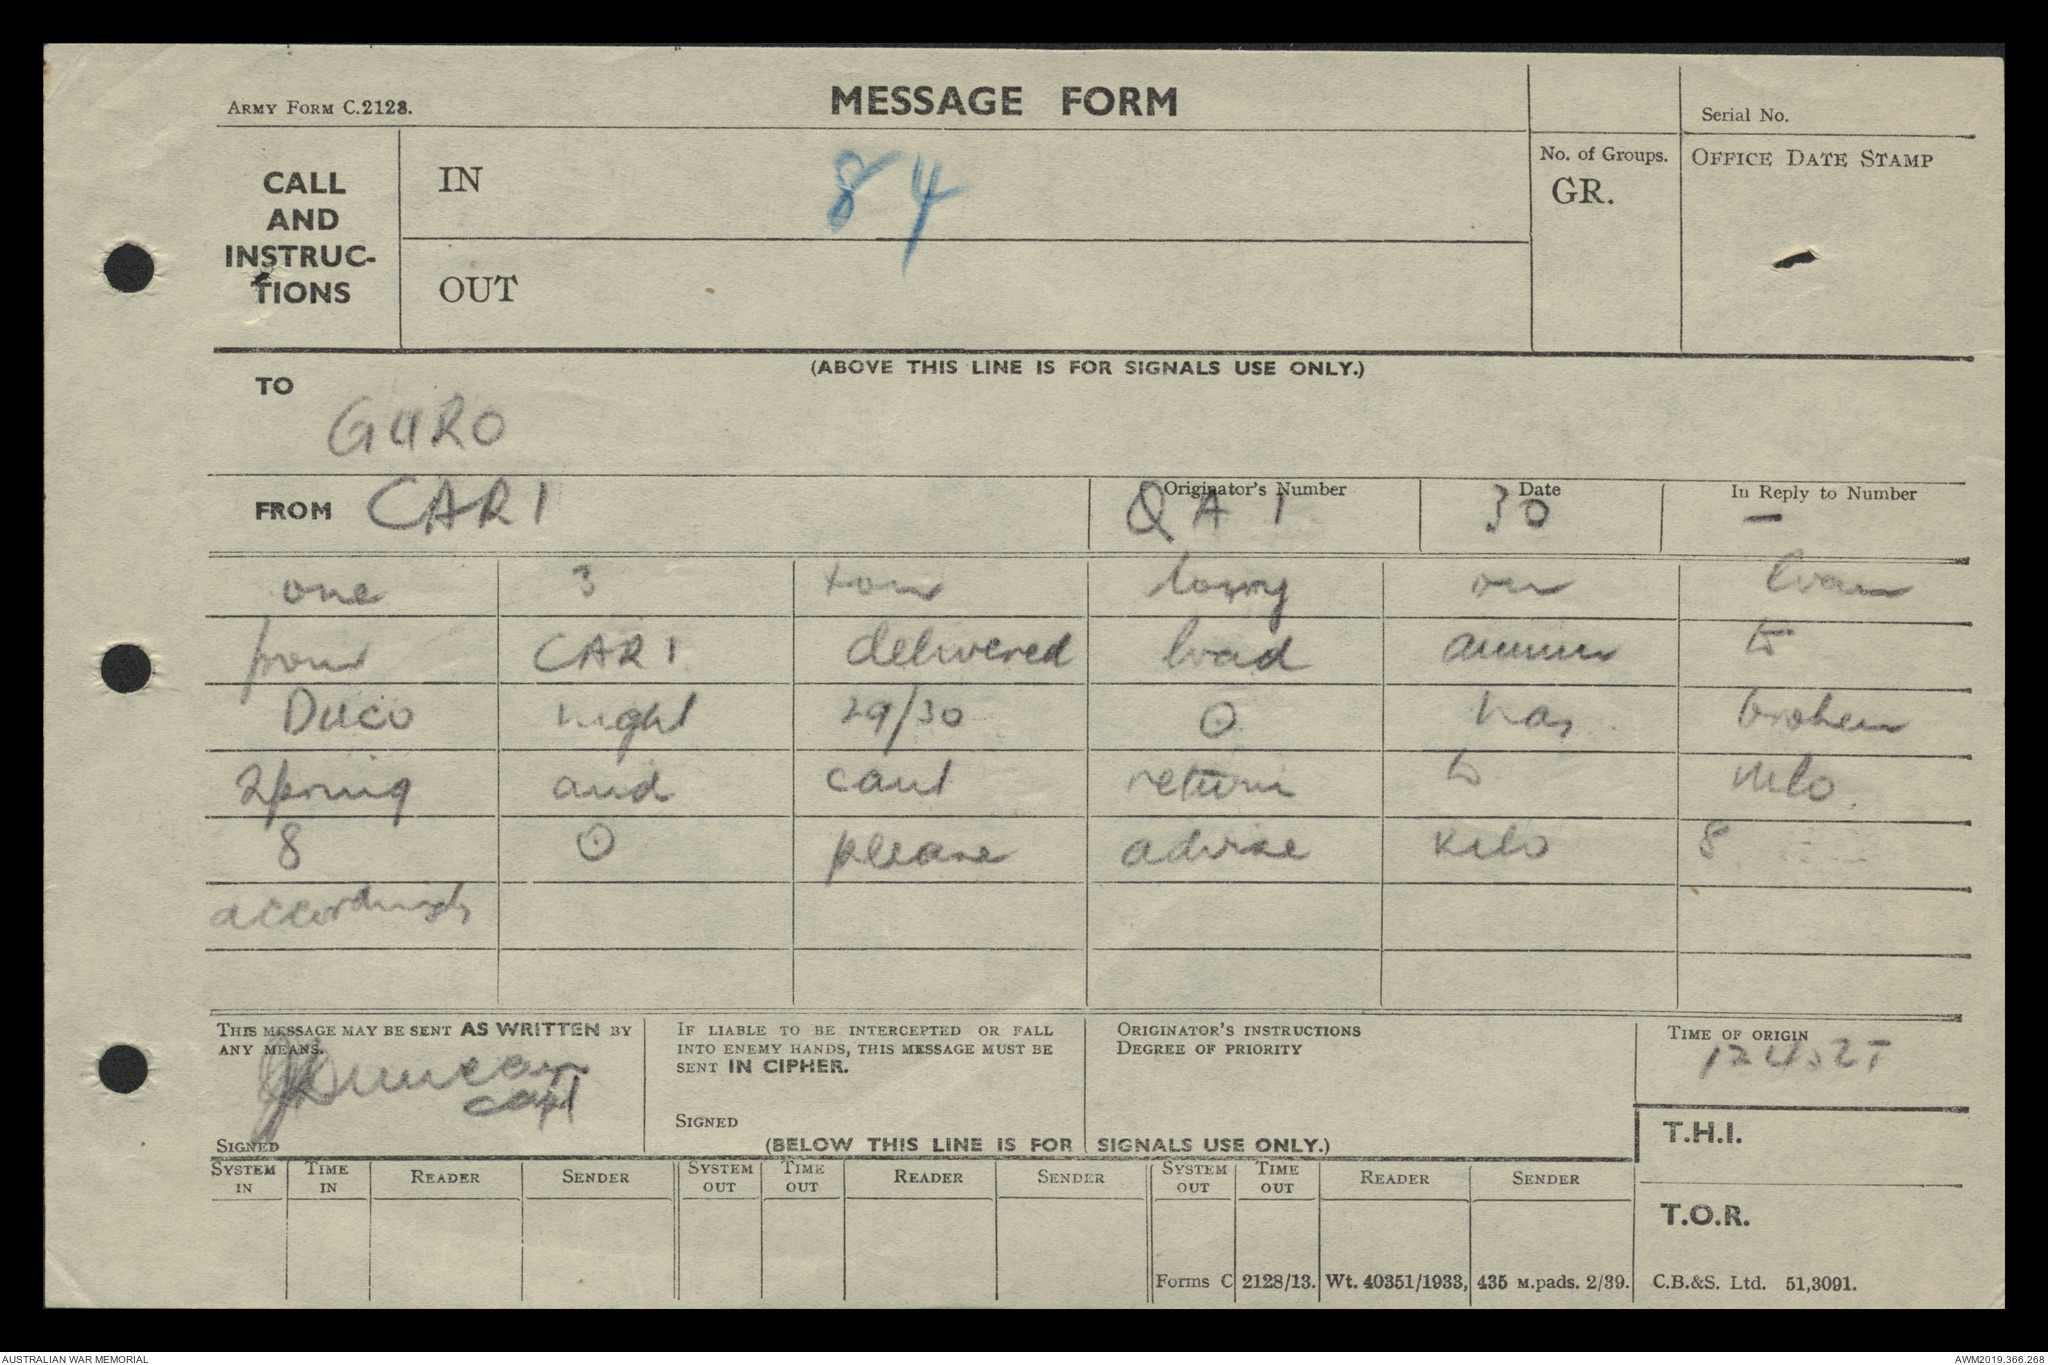 ARMY FORM C.2128.
MESSAGE FORM
Serial No.
CALL
AND
INSTRUC-
TIONS
IN
84
OUT
No. of Groups.
GR.
OFFICE DATE STAMP
(ABOVE THIS LINE IS FOR SIGNALS USE ONLY.)
TO
GURO
FROM CARI
Originator's Number
QA 1
Date
30
In Reply to Number
—
one 3 ton lorry on loan
from CARI delivered load ammn to
Duco night 29/30 O has broken
spring and cant return to
8 O please advise kilo 8
accordingly
THIS MESSAGE MAY BE SENT AS WRITTEN BY
ANY MEANS.
Duncan
capt
SIGNED
IF LIABLE TO BE INTERCEPTED OR FALL
INTO ENEMY HANDS, THIS MESSAGE MUST BE
SENT IN CIPHER.
SIGNED
ORIGINATOR'S INSTRUCTIONS
DEGREE OF PRIORITY
TIME OF ORIGIN
(BELOW THIS LINE IS FOR SIGNALS USE ONLY.)
T.H.I.
T.O.R.
SYSTEM IN TIME IN READER SENDER SYSTEM OUT TIME OUT READER SENDER SYSTEM OUT TIME OUT READER SENDER
Forms C 2128/13. Wt. 40351/1933, 435 M.pads. 2/39. C.B.&S. Ltd. 51,3091.
AUSTRALIAN WAR MEMORIAL
AWM2019.366.268